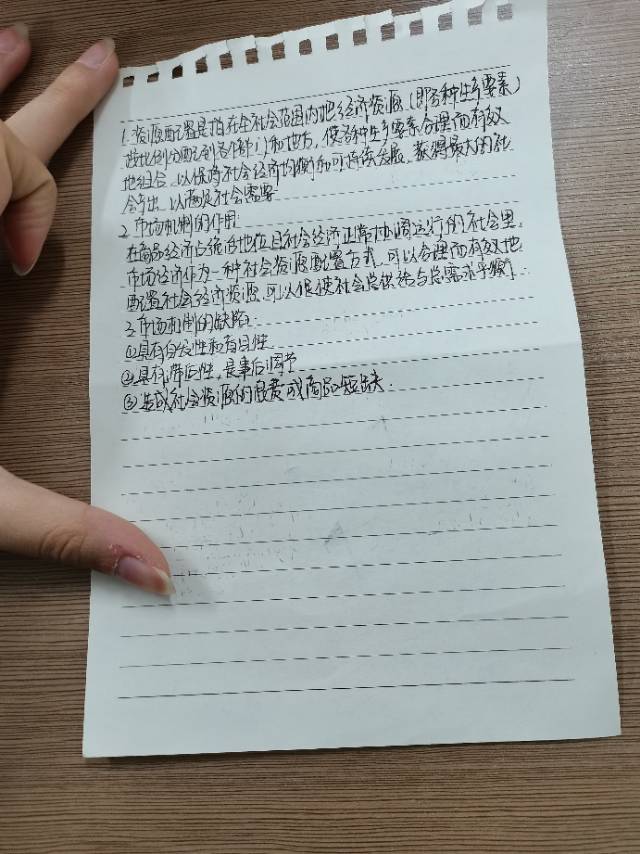 1. 资源配置是指在全社会范围内把经济资源(即各种生产要素)
按比例分配到各个部门和地方，使各种生产要素合理而有效
地组合，以保持社会经济均衡和可持续发展，获得最大的社
会产出，以满足社会需要
2. 市场机制的作用:
在商品经济占统治地位且社会经济正常协调运行的社会里，
市场经济作为一种社会资源配置方式，可以合理而有效地
配置社会经济资源，可以促使社会总供给与总需求平衡.
3. 市场机制的缺陷:
①具有自发性和盲目性
②具有滞后性，是事后调节
③造成社会资源的浪费或商品短缺.